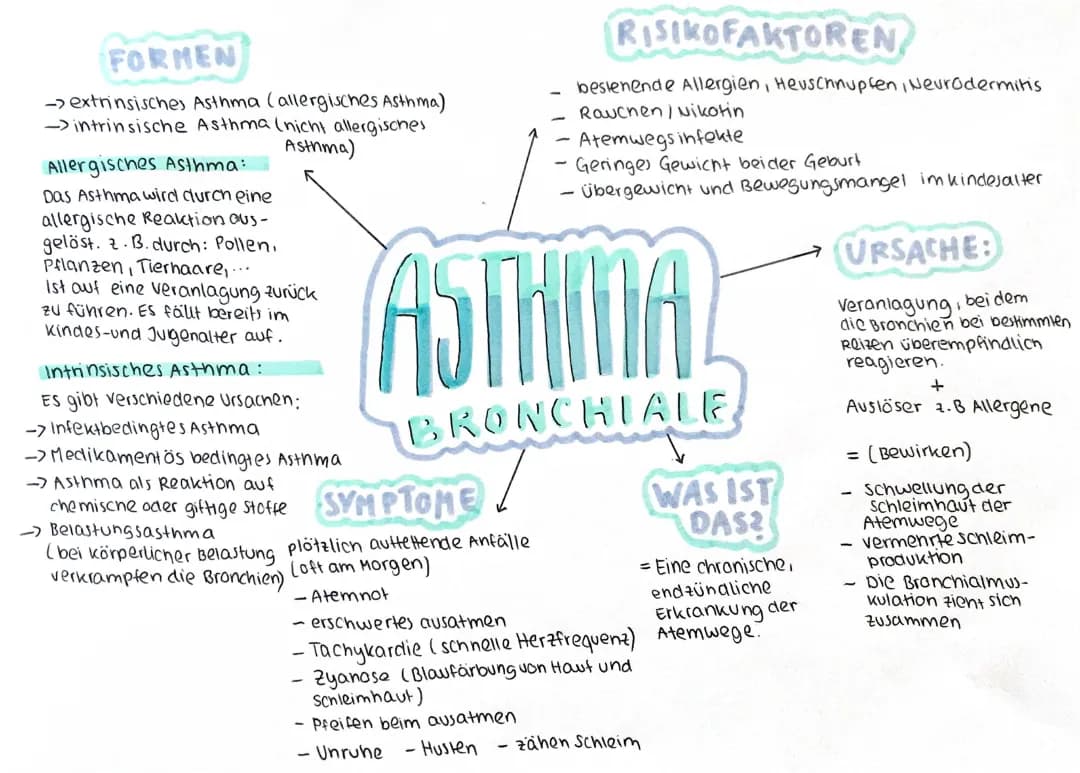 FORMEN
-> extrinsisches Asthma (allergisches Asthma)
-> intrinsische Asthma (nicht allergisches
Asthma)
Allergisches Asthma:
Das Asthma wird durch eine
allergische Reaktion aus-
gelöst. z.B. durch: Pollen,
Pflanzen, Tierhaare, ...
Ist auf eine Veranlagung zurück
zu führen. Es fällt bereits im
Kindes-und Jugenalter auf.
Intrinsisches Asthma:
ES gibt verschiedene Ursachen:
-> Infektbedingtes Asthma
-> Medikamentös bedingtes Asthma
-> Asthma als Reaktion auf
chemische oder giftige Stoffe
-> Belastungsasthma
(bei körperlicher Belastung
verkrampfen die Bronchien)
RISIKOFAKTOREN
- bestehende Allergien, Heuschnupfen, Neurodermitis
- Rauchen / Nikotin
- Atemwegsinfekte
- Geringes Gewicht bei der Geburt
- übergewicht und Bewegungsmangel im kindesalter
ASTHMA
BRONCHIALE
URSACHE:
Veranlagung, bei dem
die Bronchien bei bestimmten
Reizen überempfindlich
reagieren.
+
Auslöser z.B Allergene
= (Bewirken)
- Schwellung der
Schleimhaut der
Atemwege
- vermehrte Schleim-
produktion
- Die Bronchialmus-
kulation zieht sich
zusammen
SYMPTOME
plötzlich auftettende Anfälle
(oft am Morgen)
- Atemnot
- erschwertes ausatmen
- Tachykardie (schnelle Herzfrequenz)
- Zyanose (Blaufärbung von Haut und
Schleimhaut)
- Pfeifen beim ausatmen
- Unruhe - Husten - zähen Schleim
WAS IST
DAS?
= Eine chronische,
endzündliche
Erkrankung der
Atemwege.